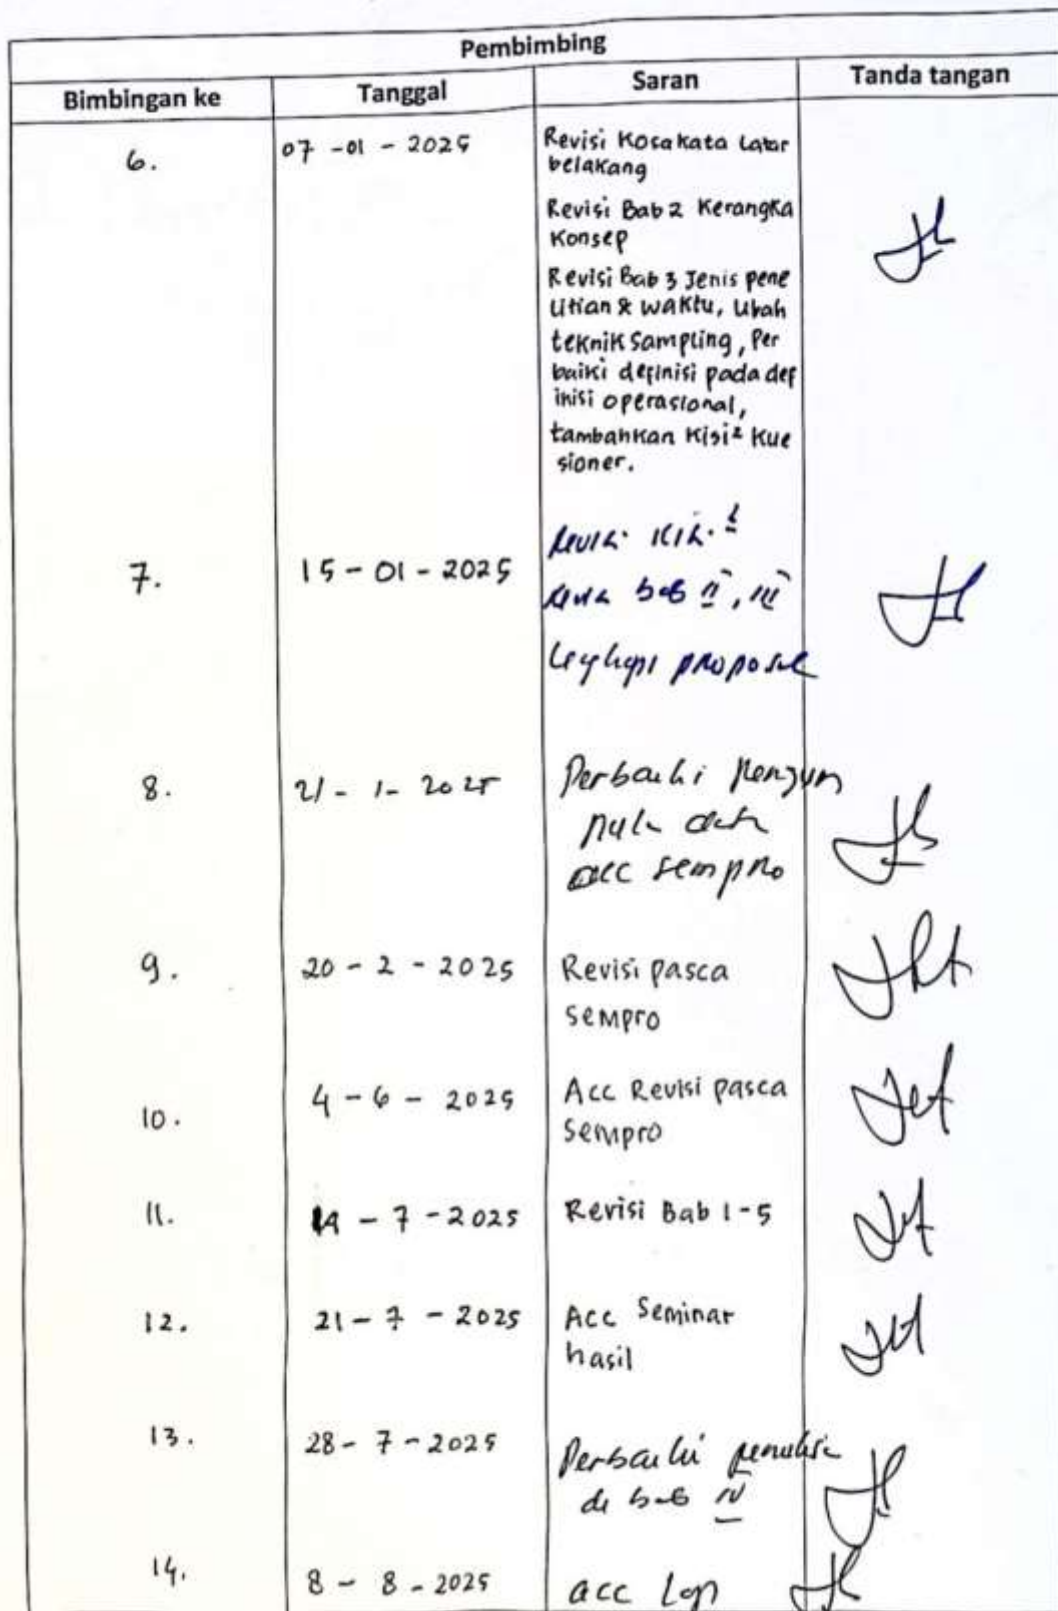 Pembimbing
Bimbingan ke Tanggal Saran Tanda tangan
6. 07 - 01 - 2025 Revisi Kosakata Latar
belakang
Revisi Bab 2 Kerangka
Konsep
Revisi Bab 3 Jenis pene
litian & waktu, Ubah
teknik Sampling, Per
baiki definisi pada def
inisi operasional,
tambahkan Kisi² Kue
sioner.
7. 15 - 01 - 2025
bab II, III
proposal
8. 21 - 1 - 2025 Perbaiki Pengum
pula data
acc sempro
9. 20 - 2 - 2025 Revisi pasca
sempro
10. 4 - 6 - 2025 Acc Revisi pasca
Sempro
11. 14 - 7 - 2025 Revisi Bab 1 - 5
12. 21 - 7 - 2025 Acc Seminar
hasil
13. 28 - 7 - 2025 Perbaiki penulisa
di bab IV
14. 8 - 8 - 2025 acc